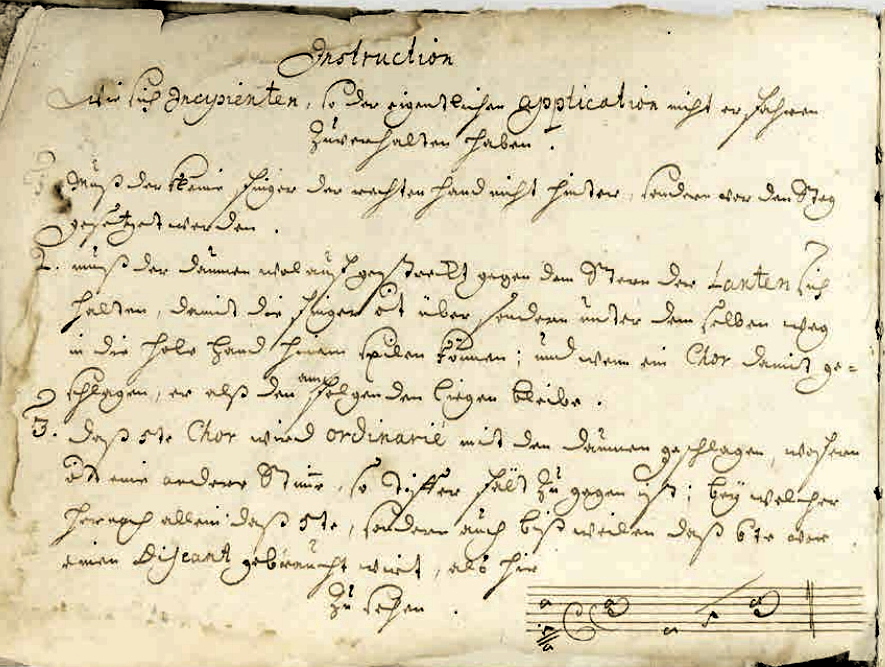 Instruction
Wie sich Incipienten, so der eigentlichen application nicht erfahren
zuverhalten haben.
1. Muß der kleine finger der rechten hand nicht hinter, sondern vor den Steg
gesetzet werden.
2. muß der daumen wol außgestreckt gegen dem Stern der Lauten sich
halten, damit die finger nit über sondern unter dem selben weg
in die hole hand hinein spilen können; und wenn ein Chor damit ge=
schlagen, er alß dan am folgenden ligen bleibe.
3. daß 5te Chor wird ordinariè mit den daumen geschlagen, wofern
nit eine andere Stimme, so tiffer fält zu gegen ist; bey welcher
hernach allein daß 5te, sondern auch bißweilen daß 6te vor
einen Discant gebraucht wirt, als hir
zu sehen.